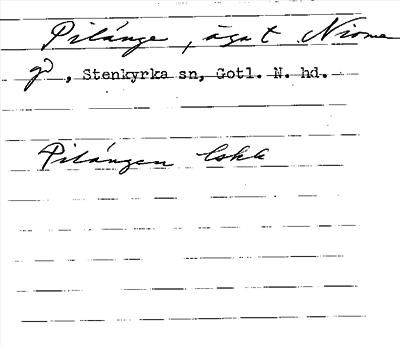 Pilänge, äga t Nione
gd, Stenkyrka sn, Gotl. N. hd.
Pilängen